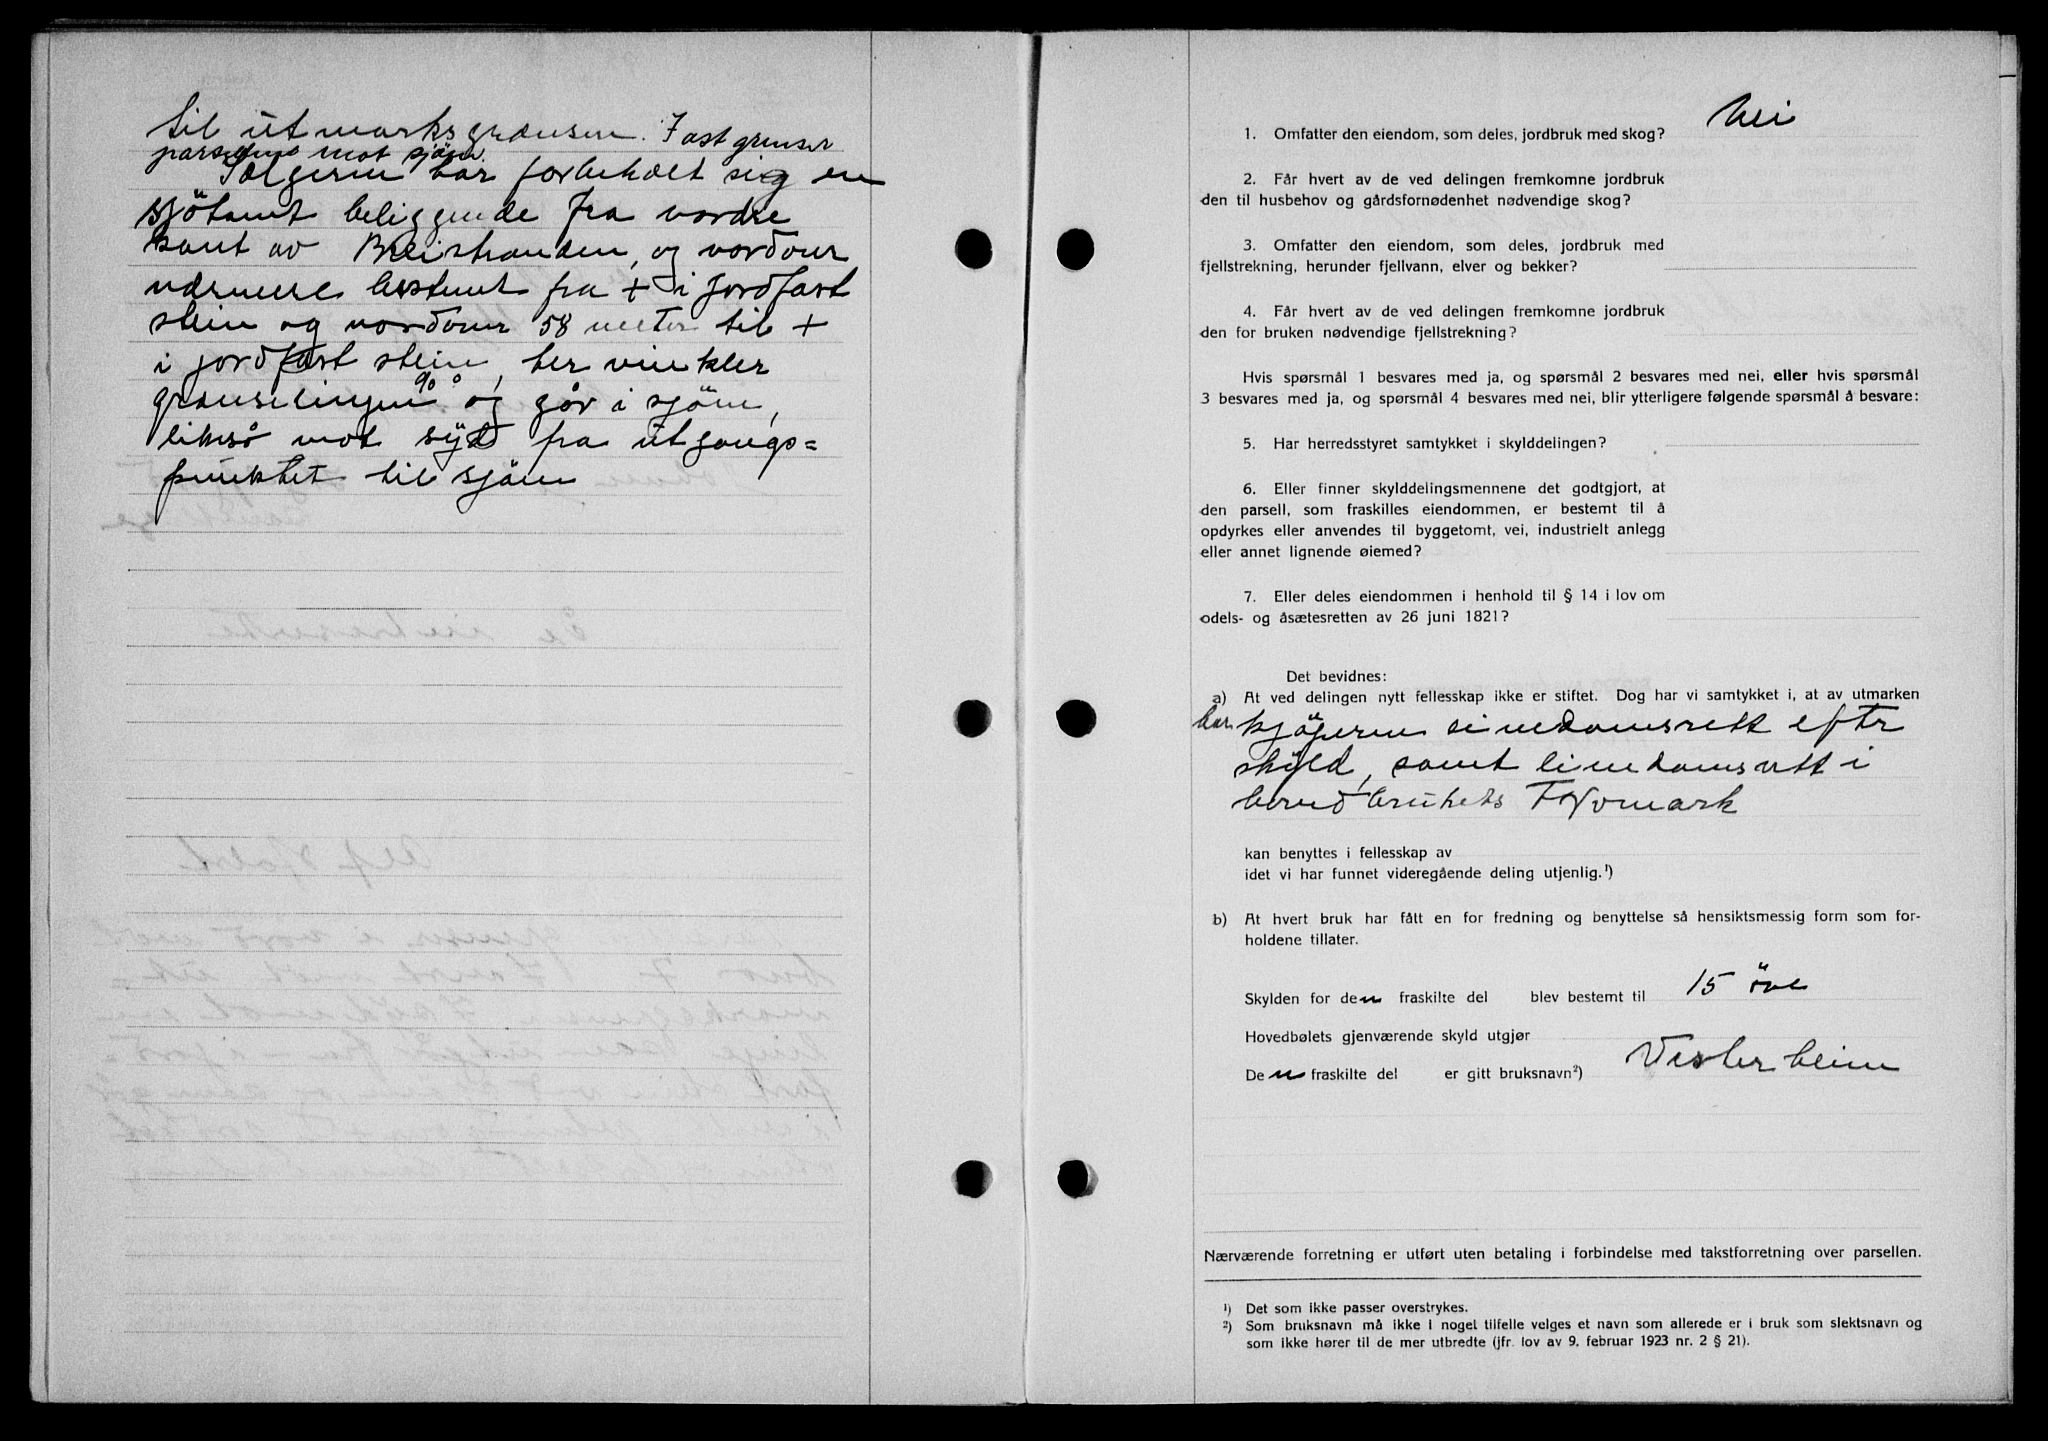 til utmarksgrænsen. I ost grenser
parsellene mot sjøen.
Sælgeren har forbeholdt sig en
sjötomt beliggende fra nordre
kant av Breistranden, og nordover
nærmere bestemt fra + i jordfast
stein og nordover 58 meter til +
i jordfast stein, her vinkler
grænselinjen 90° og går i sjöen,
likeså mot syd fra utgangs=
punktet til sjöen
1. Omfatter den eiendom, som deles, jordbruk med skog? Nei
2. Får hvert av de ved delingen fremkomne jordbruk
den til husbehov og gårdsfornødenhet nødvendige skog?
3. Omfatter den eiendom, som deles, jordbruk med
fjellstrekning, herunder fjellvann, elver og bekker?
4. Får hvert av de ved delingen fremkomne jordbruk
den for bruken nødvendige fjellstrekning?
Hvis spørsmål 1 besvares med ja, og spørsmål 2 besvares med nei, eller hvis spørsmål
3 besvares med ja, og spørsmål 4 besvares med nei, blir ytterligere følgende spørsmål å besvare:
5. Har herredsstyret samtykket i skylddelingen?
6. Eller finner skylddelingsmennene det godtgjort, at
den parsell, som fraskilles eiendommen, er bestemt til å
opdyrkes eller anvendes til byggetomt, vei, industrielt anlegg
eller annet lignende øiemed?
7. Eller deles eiendommen i henhold til § 14 i lov om
odels- og åsætesretten av 26 juni 1821?
Det bevidnes:
a) At ved delingen nytt fellesskap ikke er stiftet. Dog har vi samtykket i, at av utmarken
har kjöperen eiendomsrett efter
skyld, samt eiendomsrett i
hovedbrukets
kan benyttes i fellesskap av
idet vi har funnet videregående deling utjenlig.¹)
b) At hvert bruk har fått en for fredning og benyttelse så hensiktsmessig form som for-
holdene tillater.
Skylden for den fraskilte del blev bestemt til 15 öre
Hovedbølets gjenværende skyld utgjør
Den fraskilte del er gitt bruksnavn²) Vesterheim
Nærværende forretning er utført uten betaling i forbindelse med takstforretning over parsellen.
¹) Det som ikke passer overstrykes.
²) Som bruksnavn må ikke i noget tilfelle velges et navn som allerede er i bruk som slektsnavn og
som ikke hører til de mer utbredte (jfr. lov av 9. februar 1923 nr. 2 § 21).